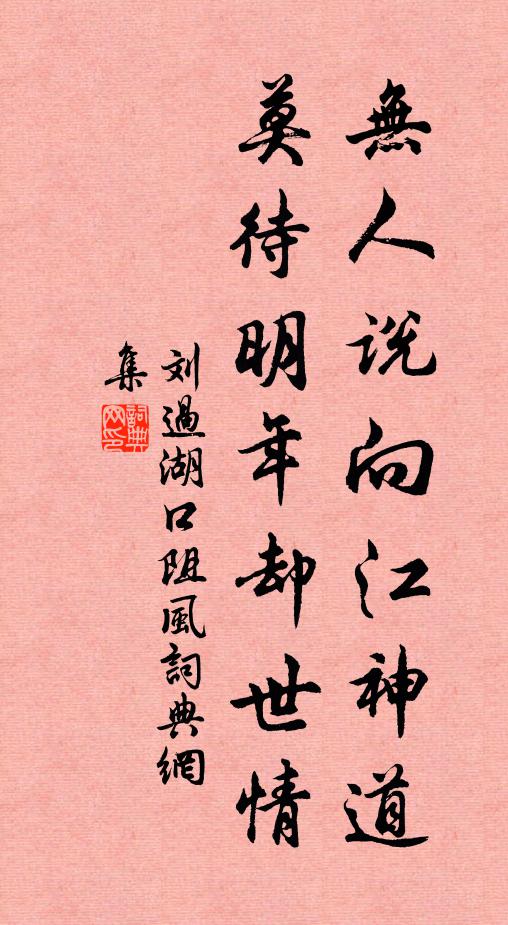 無人說向江神道
莫待明年却世情
刘過湖口阻風詞典網
集
詞典
网印